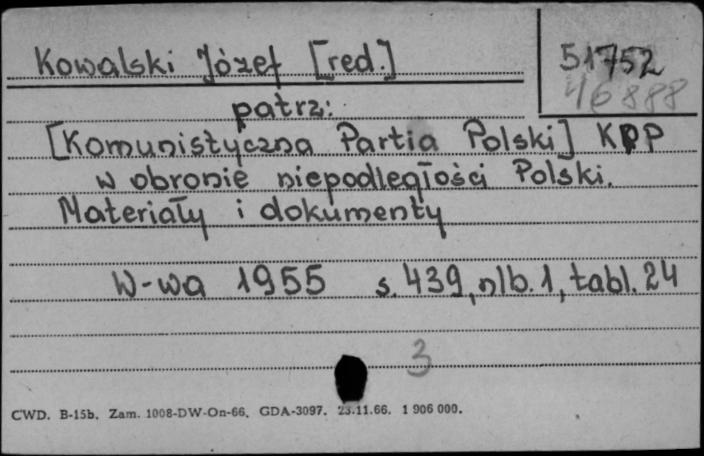 Kowalski Józef [red.]
51752
46888
patrz:
[Komunistyczna Partia Polski] KPP
w obronie niepodległości Polski.
Materiały i dokumenty
W-wa 1955 s. 439, nlb. 1, tabl. 24
3
CWD. B-15b. Zam. 1008-DW-On-66. GDA-3097. 23.11.66. 1 906 000.